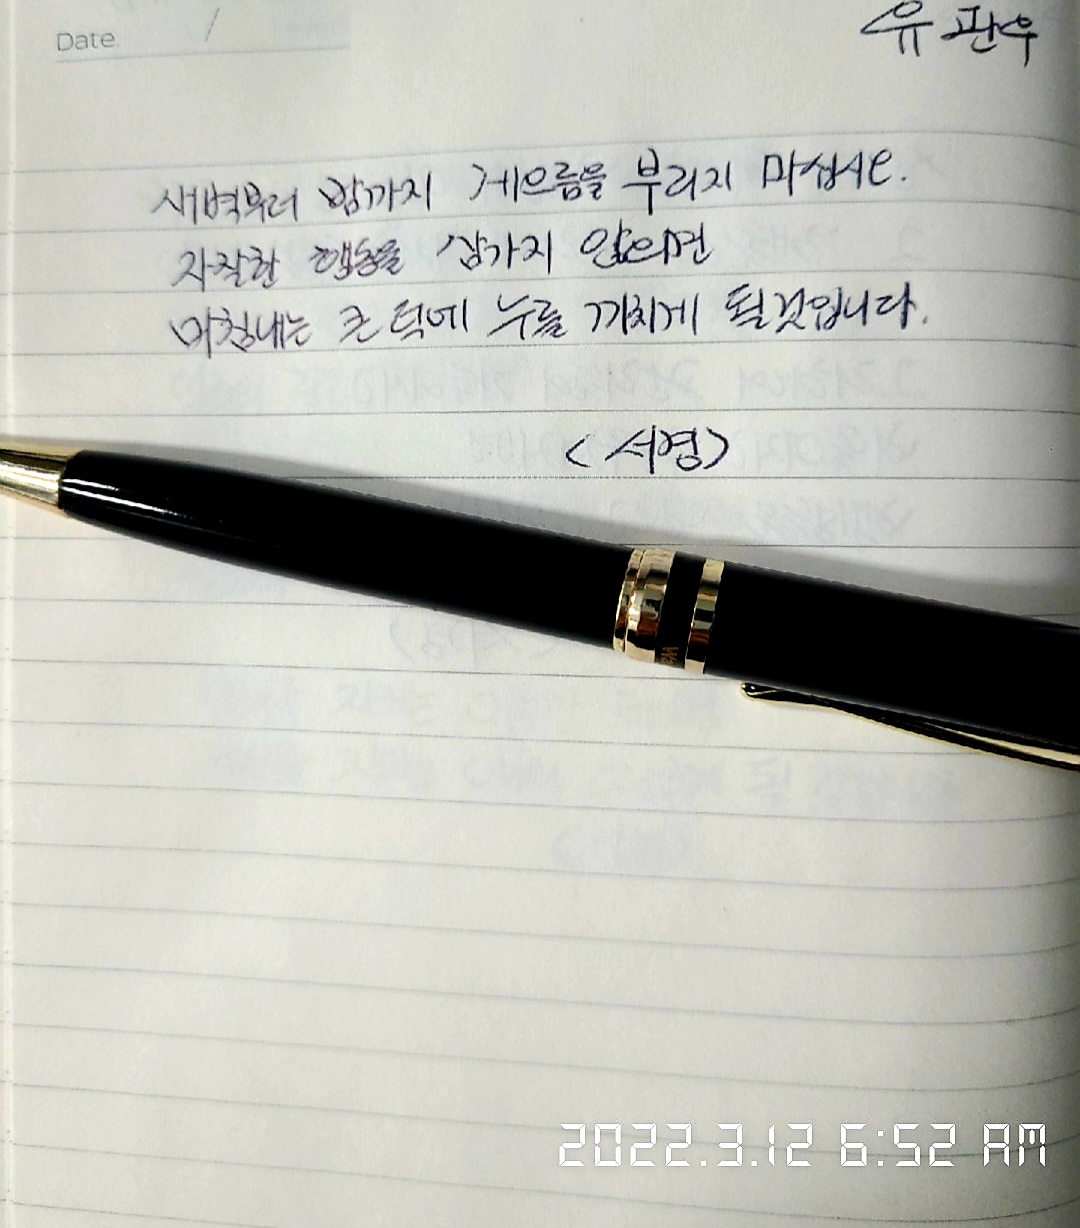 Date. /
유판우
새벽부터 밤까지 게으름을 부리지 마십시요.
자잘한 행동을 삼가지 않으면
마침내는 큰 덕에 누를 끼치게 될것입니다.
<서경>
2022.3.12 6:52 AM